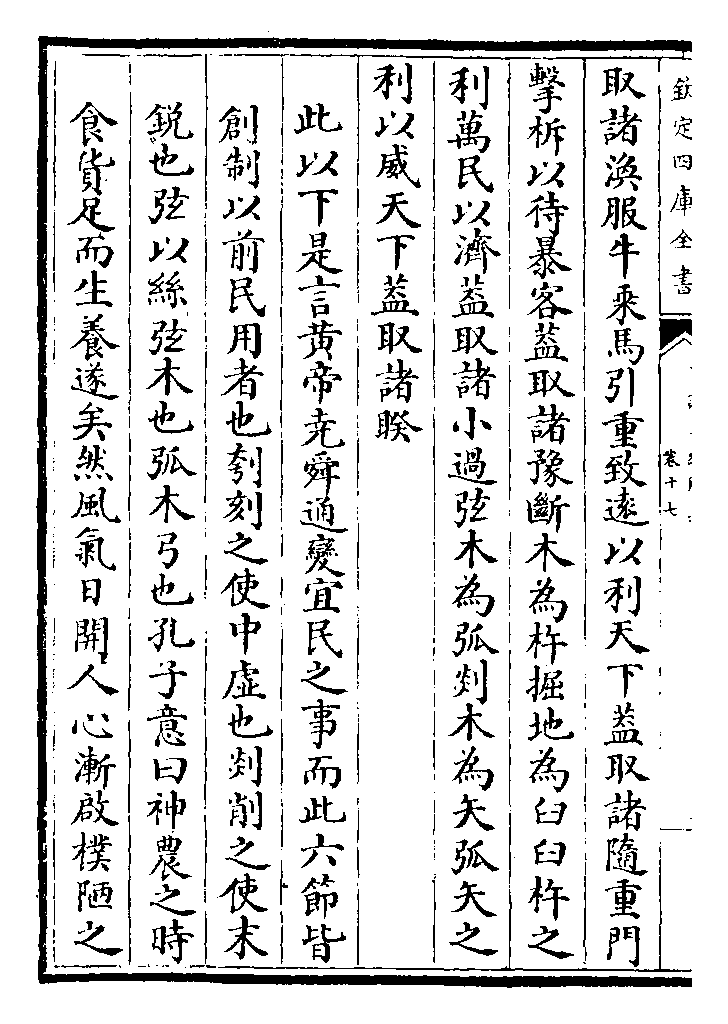 欽定四庫全書
卷十七
取諸渙服牛乘馬引重致遠以利天下葢取諸隨重門
擊柝以待暴客葢取諸豫斷木為杵掘地為臼臼杵之
利萬民以濟葢取諸小過弦木為弧剡木為矢弧矢之
利以威天下葢取諸睽
此以下是言黄帝堯舜通變宜民之事而此六節皆
創制以前民用者也刳刻之使中虛也剡削之使末
鋭也弦以絲弦木也弧木弓也孔子意曰神農之時
食貨足而生養遂矣然風氣日開人心漸啟樸陋之